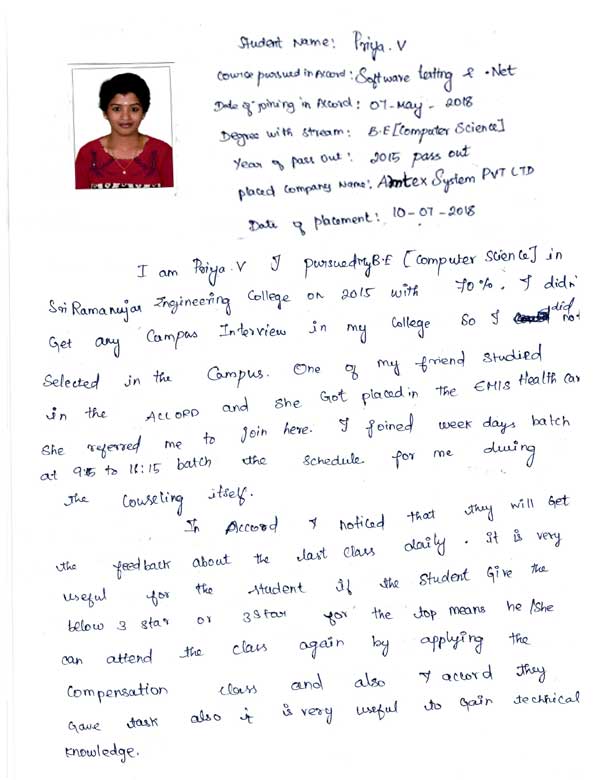 Student Name: Priya.V
Course pursued in Accord: Software testing & .Net
Date of joining in Accord: 07-May-2018
Degree with stream: B.E [Computer Science]
Year of pass out: 2015 pass out
placed company Name: Amtex System PVT LTD
Date of placement: 10-07-2018
I am Priya.V I pursued My B.E [Computer Science] in
Sri Ramanujar Engineering College on 2015 with 70%. I didn'
Get any Campus Interview in my College So I did not
Selected in the Campus. One of my friend studied
in the ACCORD and she Got placed in the EMIS Health Car
She referred me to Join here. I joined week days batch
at to 11:15 batch the schedule for me during
the Counseling itself.
In Accord I noticed that they will Get
the feedback about the last class daily. It is very
useful for the student if the Student Give the
below 3 star or 3 star for the top means he/she
can attend the class again by applying the
Compensation class and also I accord they
Gave task also it is very useful to Gain technical
knowledge.